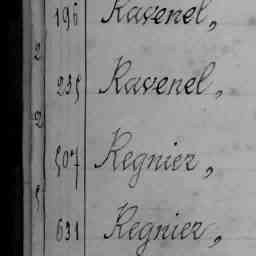 196 Ravenel,
235 Ravenel,
507 Regnier,
631 Regnier,